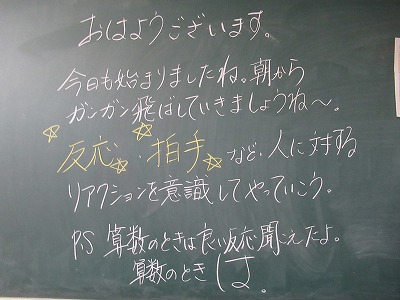 おはようございます。
今日も始まりましたね。朝から
ガンガン飛ばしていきましょうね〜。
☆反応☆・☆拍手☆など、人に対する
リアクションを意識してやっていこう。
PS 算数のときは良い反応聞こえたよ。
算数のときは。